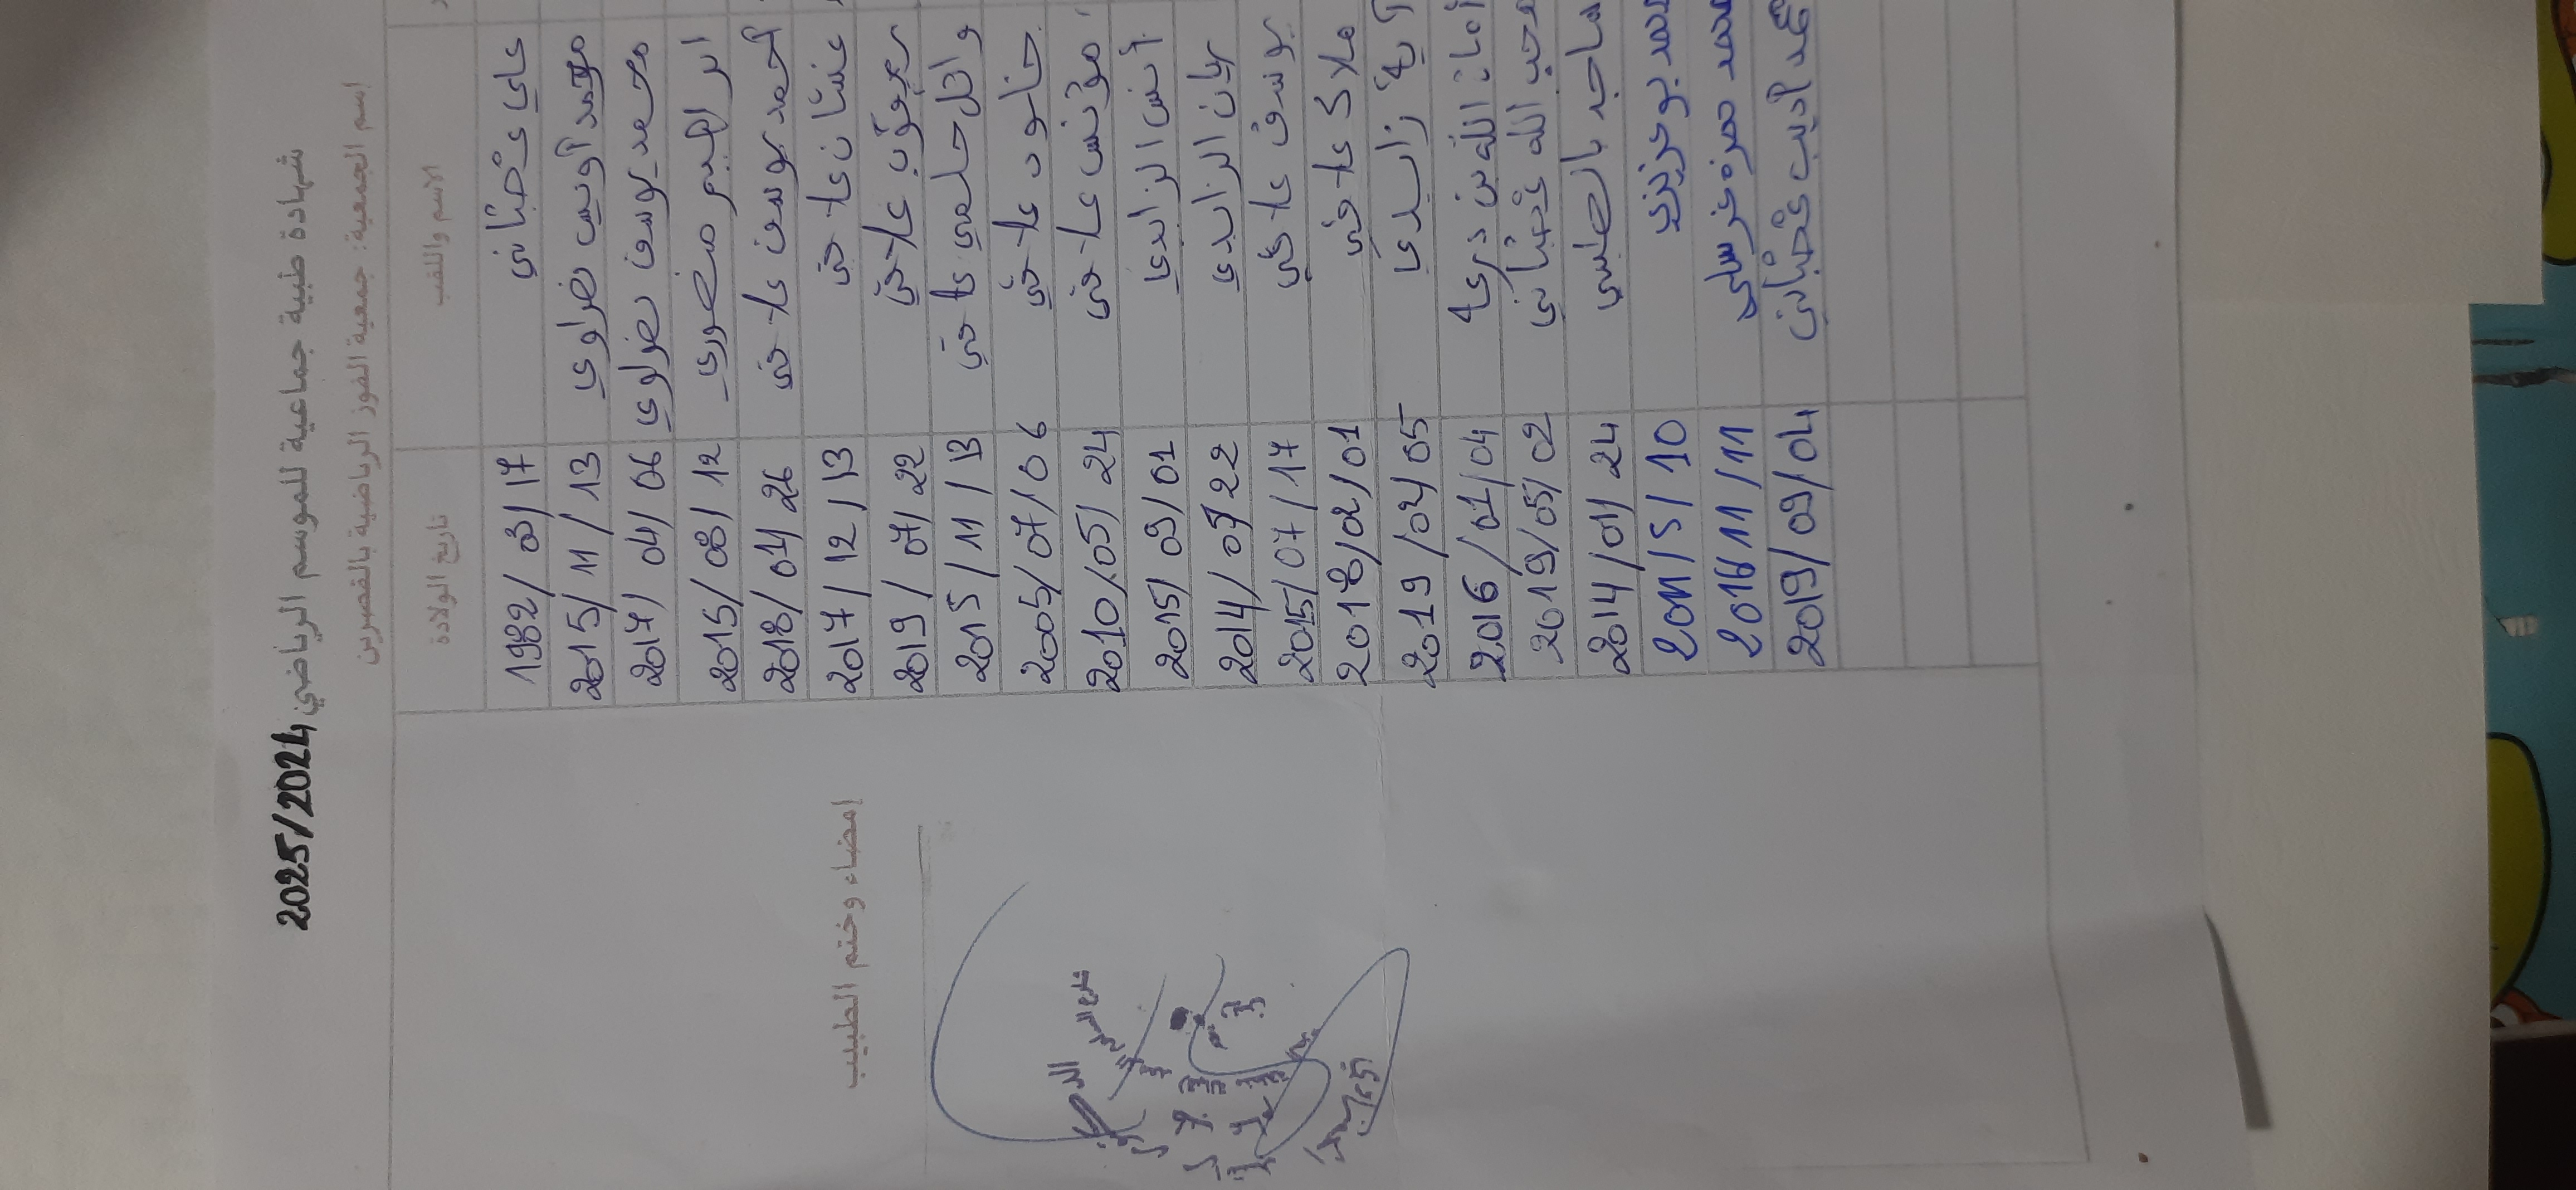 شهادة طبية جماعية للموسم الرياضي 2025/2024
اسم الجمعية: جمعية الفوز الرياضية بالقصرين
الاسم واللقب تاريخ الولادة
علي عصباني 1982/03/17
محمد أويس نصراوي 2015/11/13
محمد يوسف نصراوي 2017/04/06
ابراهيم منصوري 2015/08/12
أحمد يوسف علاقي 2018/04/26
غسان علاقي 2017/12/13
يعقوب علاقي 2019/07/22
وائل حلمي علاقي 2015/11/13
خلود علاقي 2005/07/06
مؤنس علاقي 2010/05/24
أنس الزايدي 2015/09/01
ريان الزايدي 2014/07/22
يوسف علاقي 2015/07/17
ملاك علاقي 2018/02/01
آية زايدي 2019/02/05
أمان الله بن درعة 2016/01/04
محب الله عصباني 2019/05/02
ماجد بالطيبي 2014/01/24
محمد بوعزيزي 2011/5/10
محمد حمزة غرسلي 2016/11/11
محمد أديب عصباني 2019/09/04
إمضاء وختم الطبيب